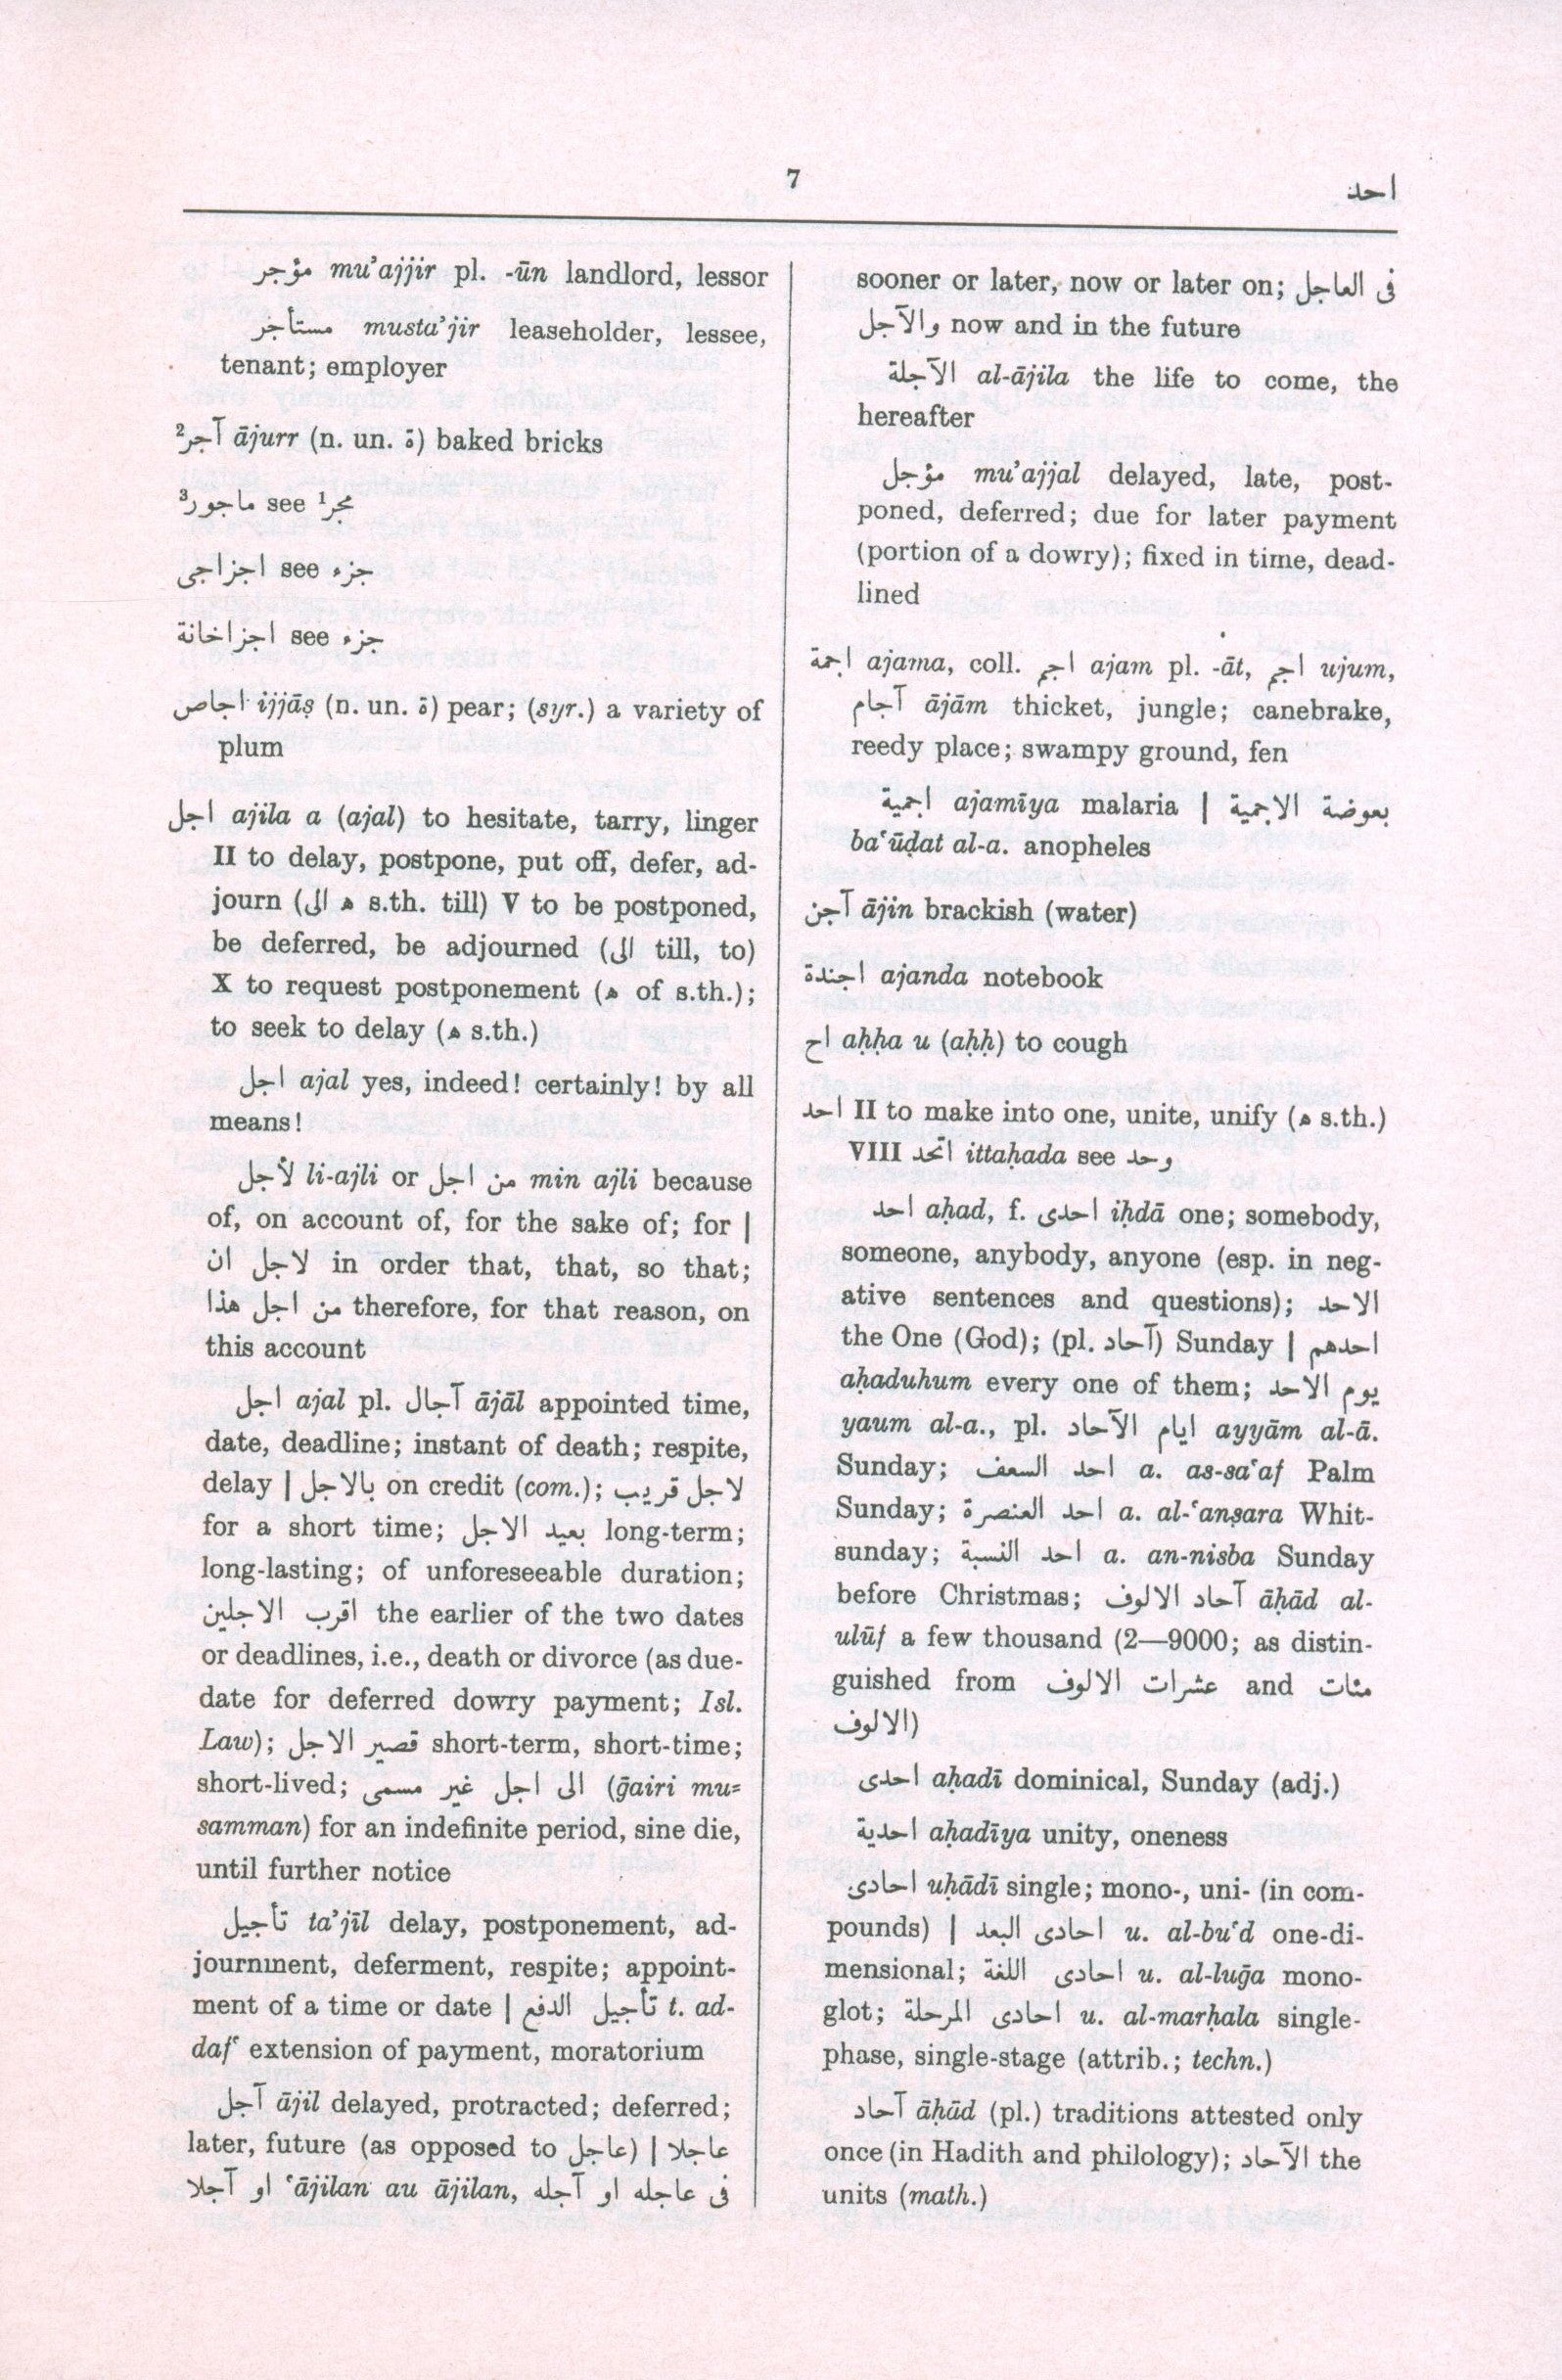 7
احد
مؤجر mu’ajjir pl. -ūn landlord, lessor
مستأجر musta’jir leaseholder, lessee,
tenant; employer
آجر² ājurr (n. un. ة) baked bricks
ماجور³ see مجر¹
اجزاجى see جزء
اجزاخانة see جزء
اجاص ijjāṣ (n. un. ة) pear; (syr.) a variety of
plum
اجل ajila a (ajal) to hesitate, tarry, linger
II to delay, postpone, put off, defer, ad-
journ (ه الى s.th. till) V to be postponed,
be deferred, be adjourned (الى till, to)
X to request postponement (ه of s.th.);
to seek to delay (ه s.th.)
اجل ajal yes, indeed! certainly! by all
means!
لأجل li-ajli or من اجل min ajli because
of, on account of, for the sake of; for |
لاجل ان in order that, that, so that;
من اجل هذا therefore, for that reason, on
this account
اجل ajal pl. آجال ājāl appointed time,
date, deadline; instant of death; respite,
delay | بالاجل on credit (com.); لاجل قريب
for a short time; بعيد الاجل long-term;
long-lasting; of unforeseeable duration;
اقرب الاجلين the earlier of the two dates
or deadlines, i.e., death or divorce (as due-
date for deferred dowry payment; Isl.
Law); قصير الاجل short-term, short-time;
short-lived; الى اجل غير مسمى (ḡairi mu=
samman) for an indefinite period, sine die,
until further notice
تأجيل ta’jīl delay, postponement, ad-
journment, deferment, respite; appoint-
ment of a time or date | تأجيل الدفع t. ad-
daf‘ extension of payment, moratorium
آجل ājil delayed, protracted; deferred;
later, future (as opposed to عاجل) | عاجلا
او آجلا ‘ājilan au ājilan, فى عاجله او آجله
sooner or later, now or later on; فى العاجل
والآجل now and in the future
الآجلة al-ājila the life to come, the
hereafter
مؤجل mu’ajjal delayed, late, post-
poned, deferred; due for later payment
(portion of a dowry); fixed in time, dead-
lined
اجمة ajama, coll. اجم ajam pl. -āt, اجم ujum,
آجام ājām thicket, jungle; canebrake,
reedy place; swampy ground, fen
اجمية ajamīya malaria | بعوضة الاجمية
ba‘ūḍat al-a. anopheles
آجن ājin brackish (water)
اجندة ajanda notebook
اح aḥḥa u (aḥḥ) to cough
احد II to make into one, unite, unify (ه s.th.)
VIII اتحد ittaḥada see وحد
احد aḥad, f. احدى iḥdā one; somebody,
someone, anybody, anyone (esp. in neg-
ative sentences and questions); الاحد
the One (God); (pl. آحاد) Sunday | احدهم
aḥaduhum every one of them; يوم الاحد
yaum al-a., pl. ايام الآحاد ayyām al-ā.
Sunday; احد السعف a. as-sa‘af Palm
Sunday; احد العنصرة a. al-‘anṣara Whit-
sunday; احد النسبة a. an-nisba Sunday
before Christmas; آحاد الالوف āḥād al-
ulūf a few thousand (2—9000; as distin-
guished from عشرات الالوف and مئات
الالوف)
احدى aḥadī dominical, Sunday (adj.)
احدية aḥadīya unity, oneness
احادى uḥādī single; mono-, uni- (in com-
pounds) | احادى البعد u. al-bu‘d one-di-
mensional; احادى اللغة u. al-luḡa mono-
glot; احادى المرحلة u. al-marḥala single-
phase, single-stage (attrib.; techn.)
آحاد āḥād (pl.) traditions attested only
once (in Hadith and philology); الآحاد the
units (math.)